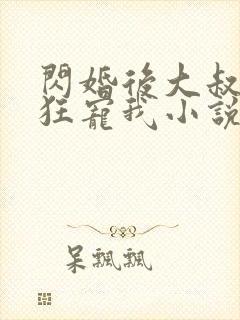 閃婚後大叔
狂寵我小說
呆飄飄